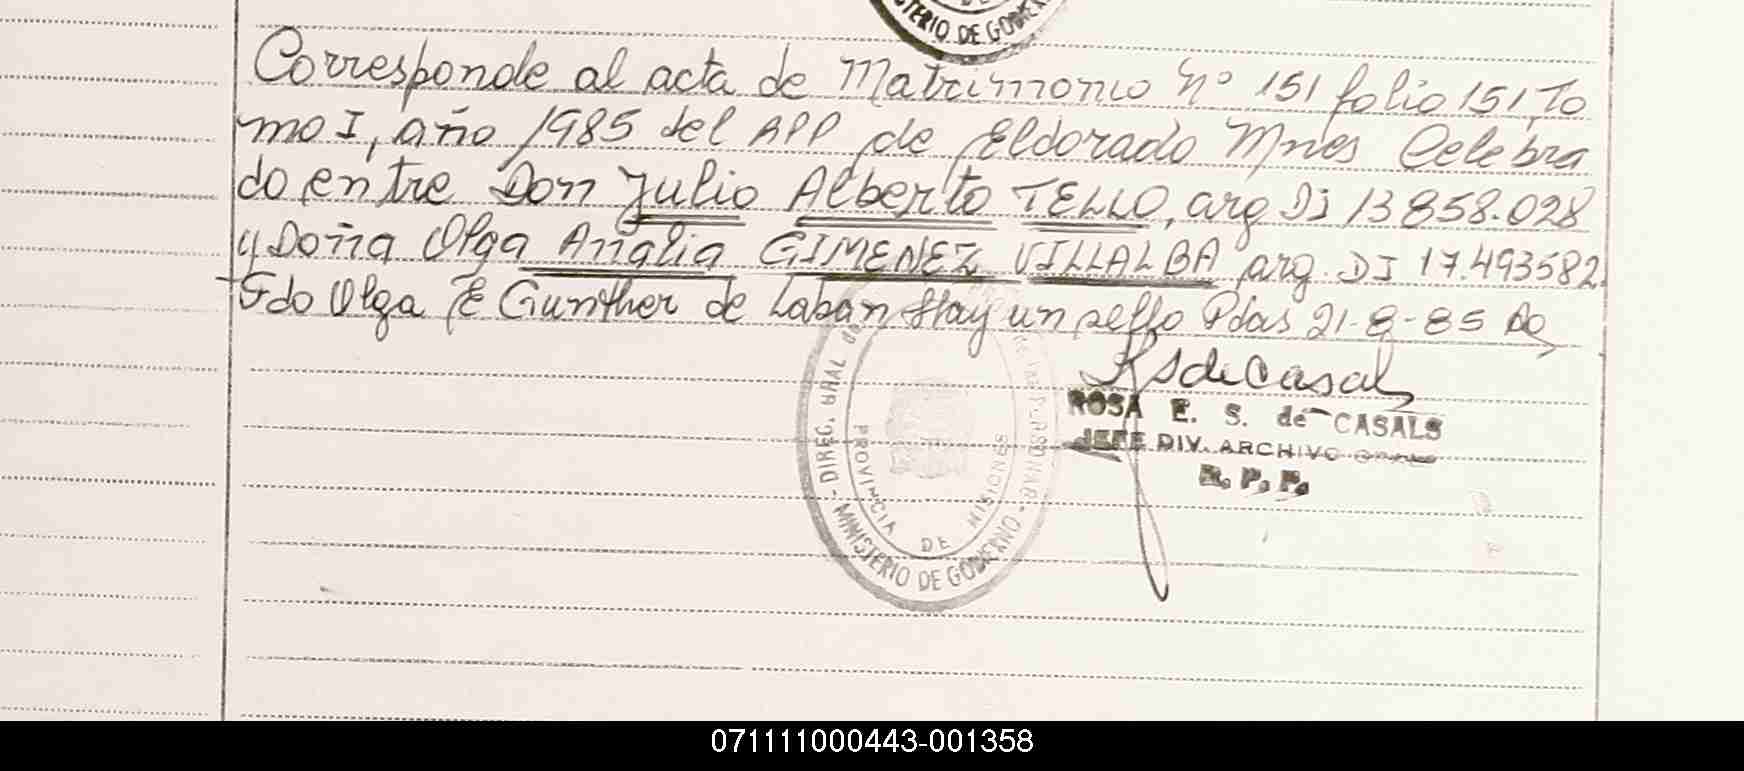 MINISTERIO DE GOBIERNO
Corresponde al acta de Matrimonio Nº 151 folio 151, To
mo I, año 1985 del APP de Eldorado Mnes Celebra
do entre Don Julio Alberto TELLO, arg DI 13858.028
y Doña Olga Analia GIMENEZ VILLALBA arg. DI 17.493582
Fdo Olga E Gunther de Laban Hay un sello Pdas 21-8-85
RSdeCasals
ROSA E. S. de CASALS
JEFE DIV. ARCHIVO GRAL
R. P. P.
- DIREC. GRAL DE LAS PERSONAS -
PROVINCIA DE MISIONES
MINISTERIO DE GOBIERNO
071111000443-001358